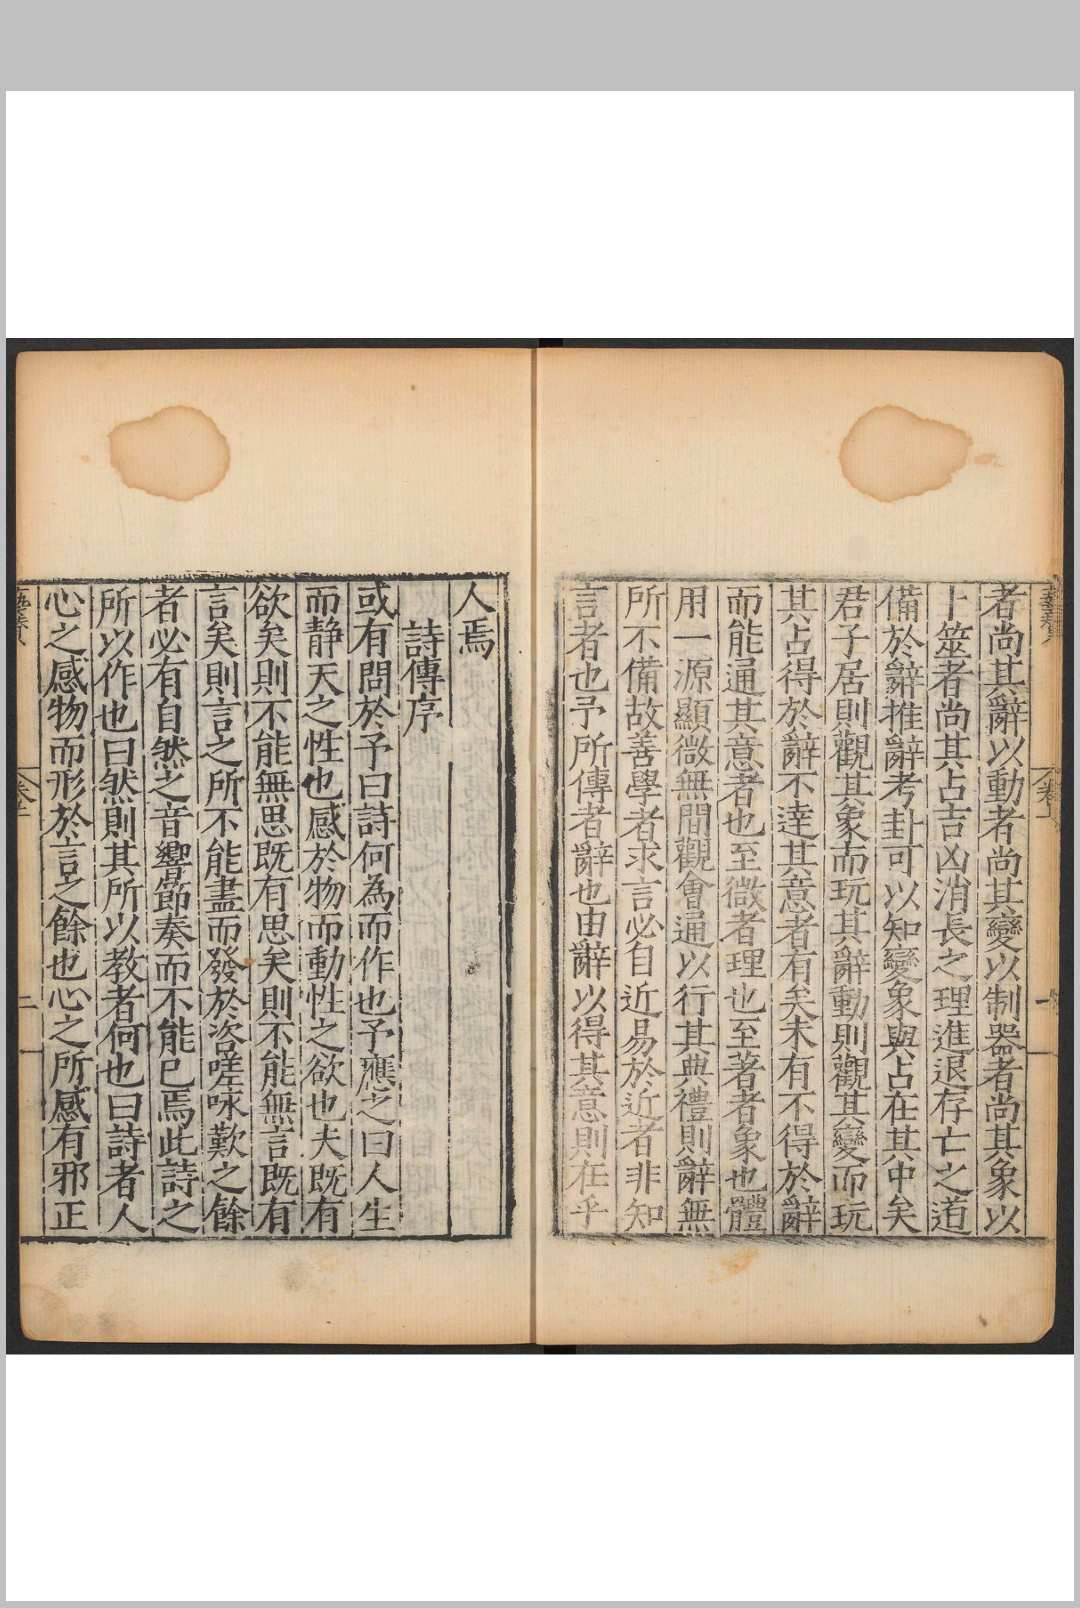 者尚其辭以動者尚其變以制器者尚其象以
卜筮者尚其占吉凶消長之理進退存亡之道
備於辭推辭考卦可以知變象與占在其中矣
君子居則觀其象而玩其辭動則觀其變而玩
其占得於辭不達其意者有矣未有不得於辭
而能通其意者也至微者理也至著者象也體
用一源顯微無間觀會通以行其典禮則辭無
所不備故善學者求言必自近易於近者非知
言者也予所傳者辭也由辭以得其意則在乎
人焉
詩傳序
或有問於予曰詩何為而作也予應之曰人生
而靜天之性也感於物而動性之欲也夫既有
欲矣則不能無思既有思矣則不能無言既有
言矣則言之所不能盡而發於咨嗟咏歎之餘
者必有自然之音響節奏而不能已焉此詩之
所以作也曰然則其所以教者何也曰詩者人
心之感物而形於言之餘也心之所感有邪正